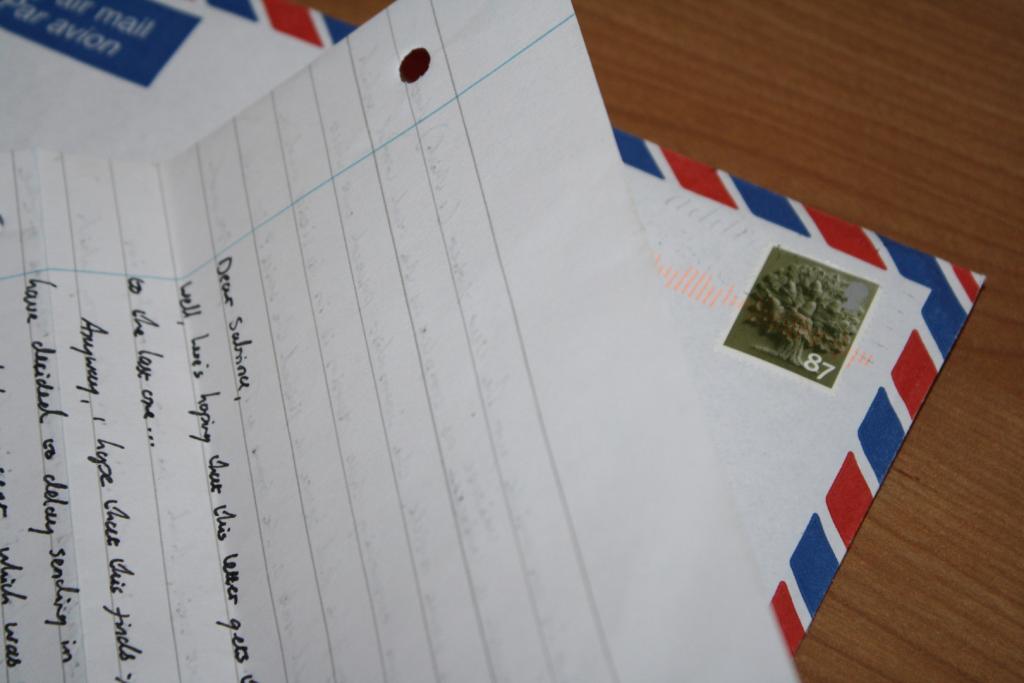 air mail
Par avion
87
Dear Sabrina,
Well, here's hoping that this letter gets
to the last one...
Anyway, I hope that this finds
have decided to delay sending in
which was